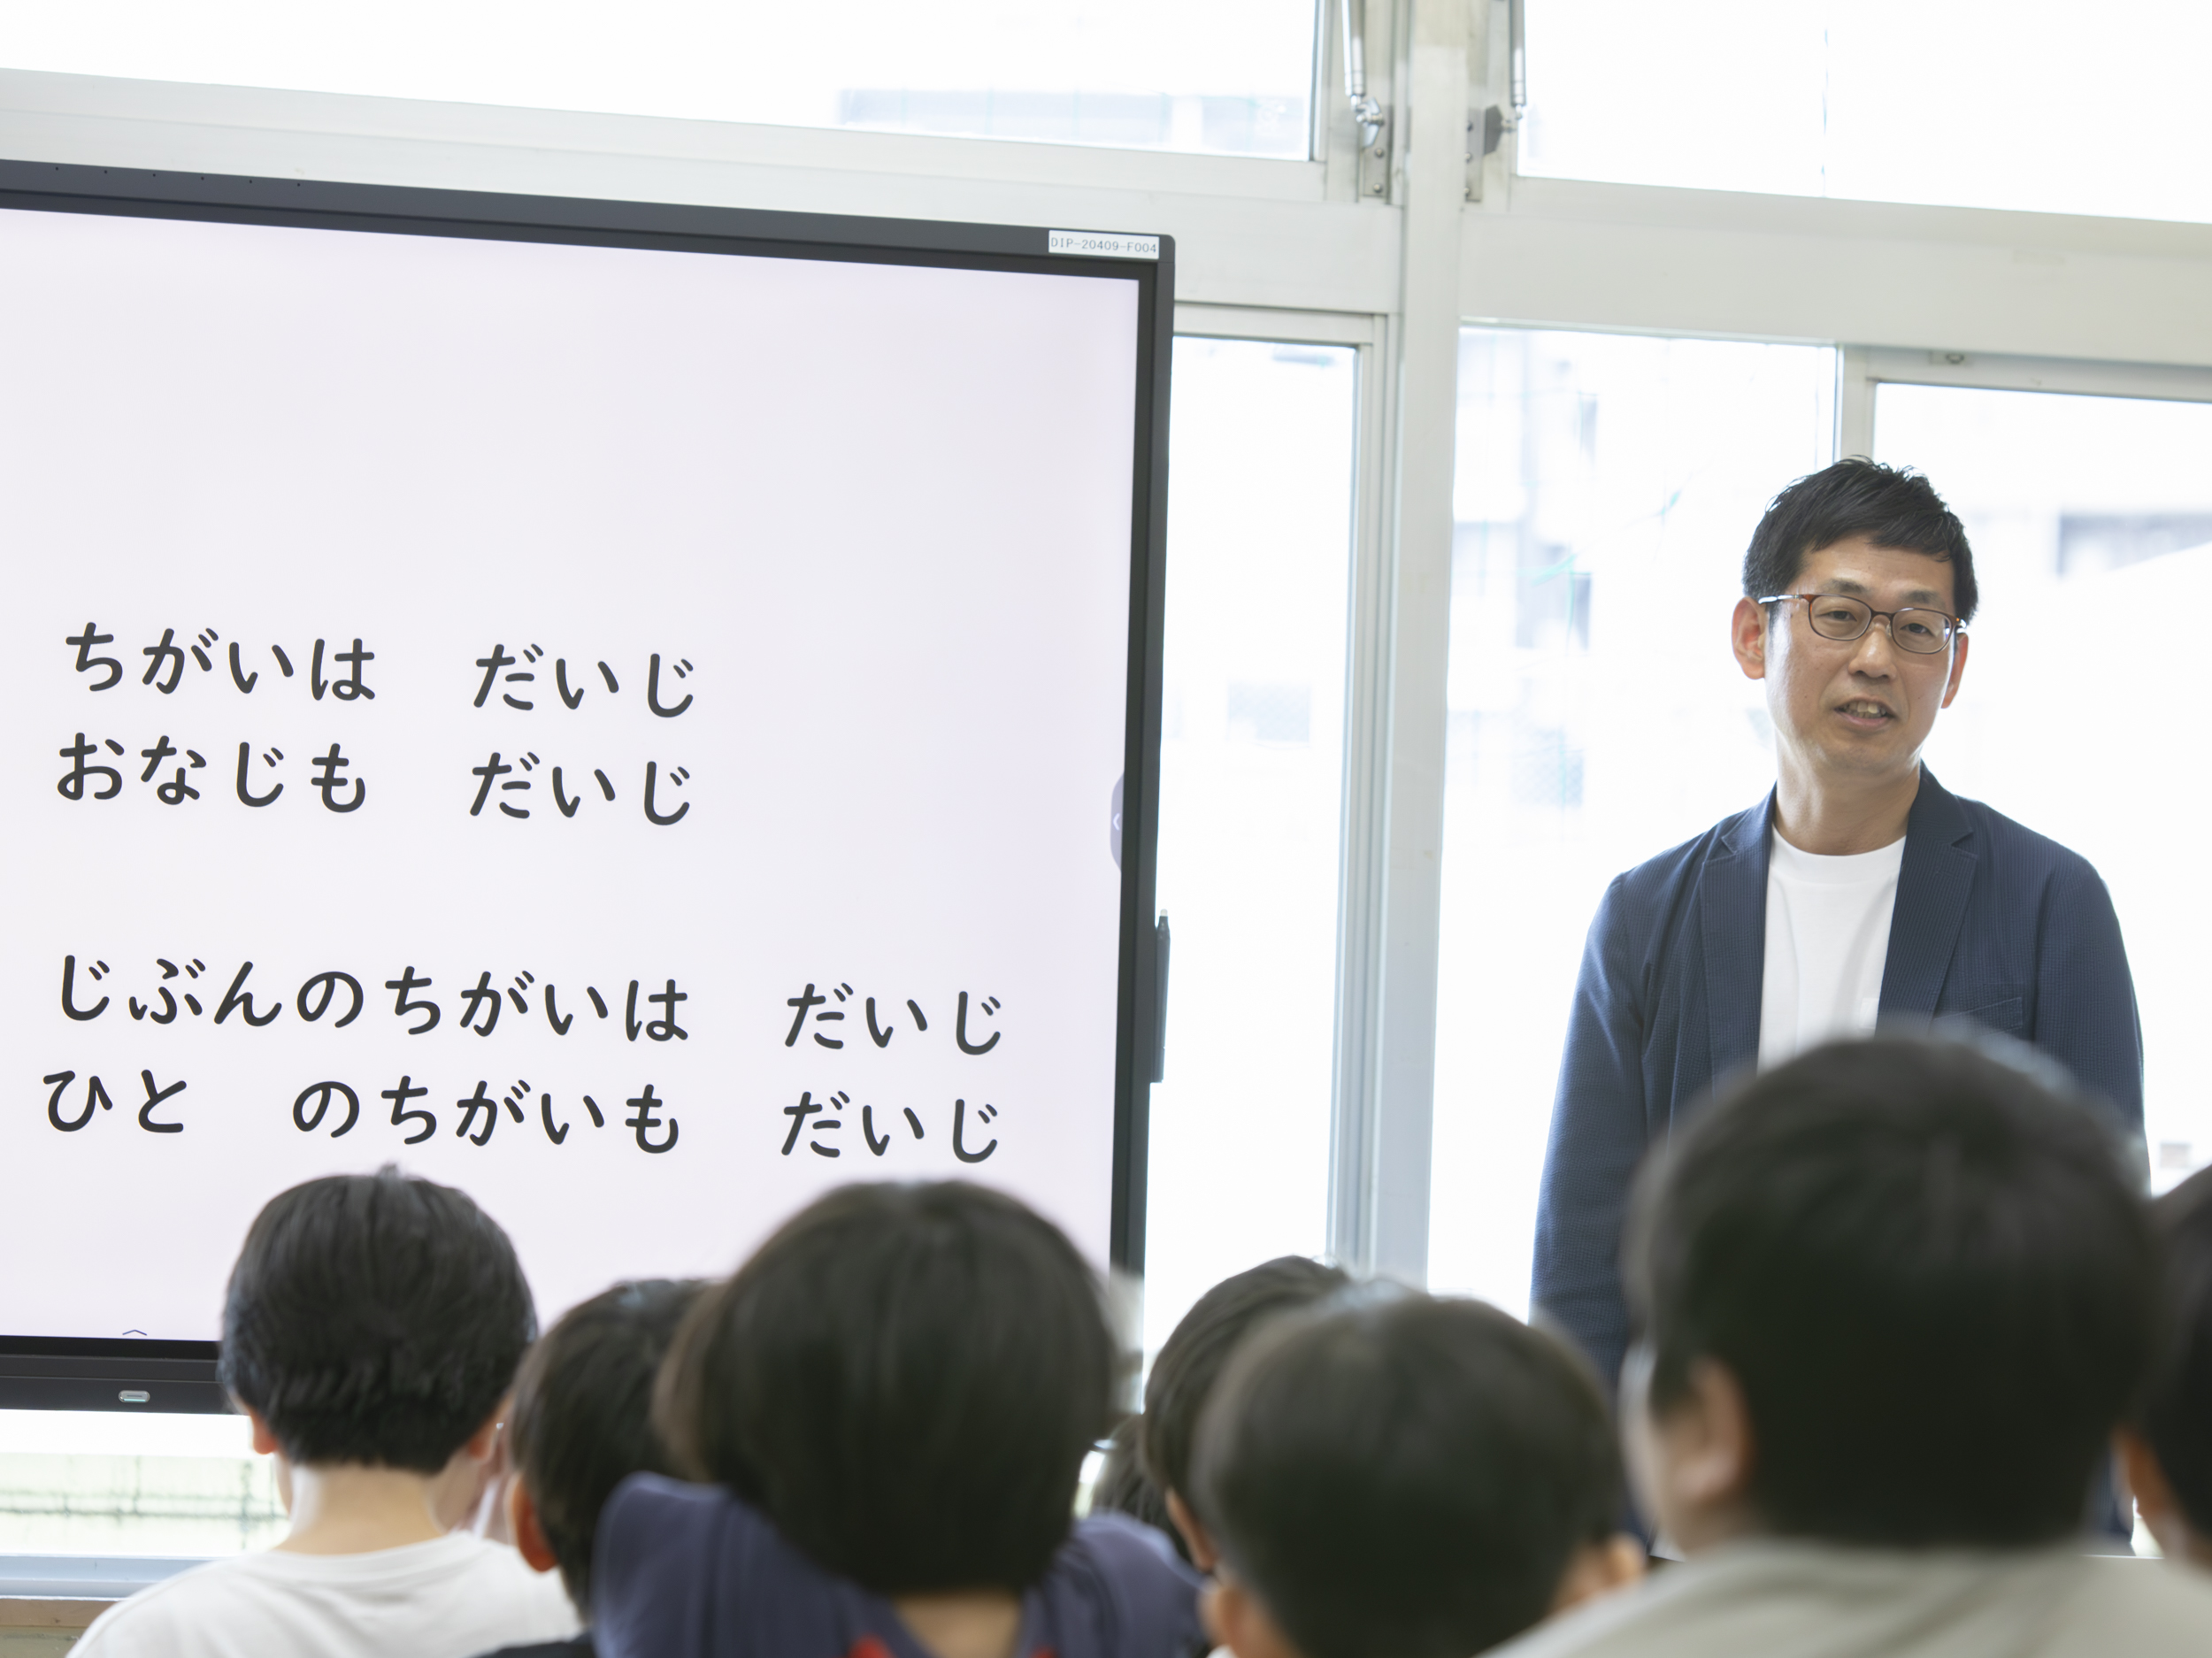 DIP-20409-F004
ちがいは　だいじ
おなじも　だいじ
じぶんのちがいは　だいじ
ひと　のちがいも　だいじ